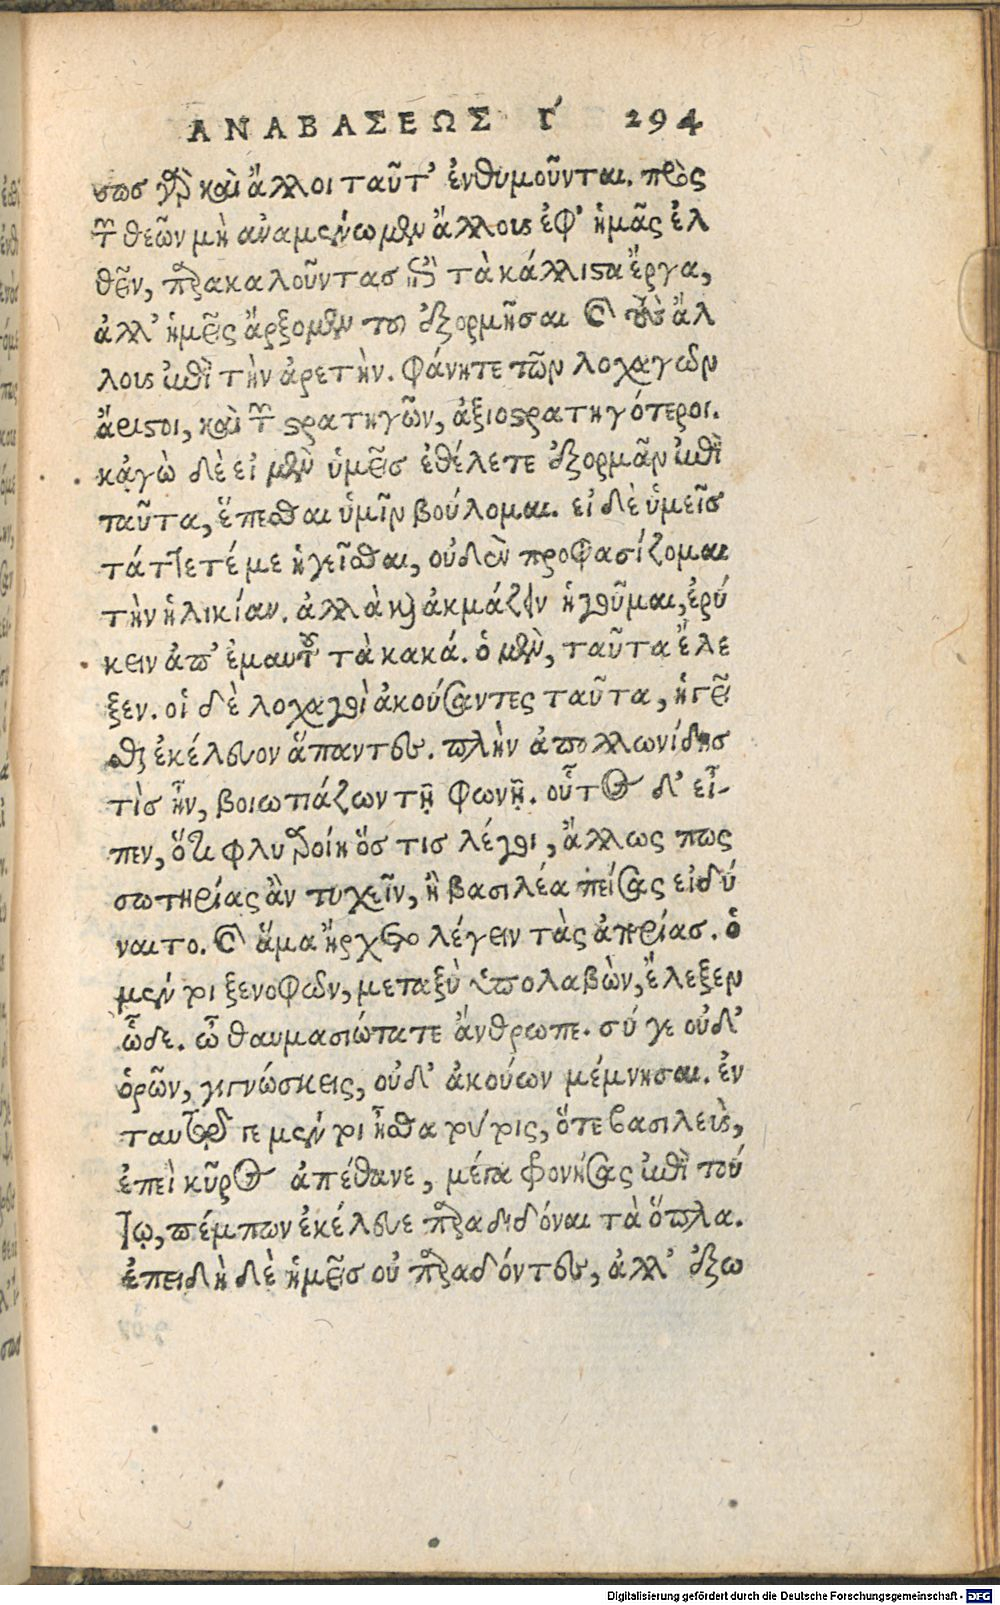 ΑΝΑΒΑΣΕΩΣ Γ 294
σως γὰρ καὶ ἄλλοι ταῦτ' ἐνθυμοῦνται. πρὸς
τῶν θεῶν μὴ ἀναμένωμεν ἄλλους ἐφ' ἡμᾶς ἐλ
θεῖν, παρακαλοῦντας ἐπὶ τὰ κάλλιστα ἔργα,
ἀλλ' ἡμεῖς ἄρξομεν τοῦ ἐξορμῆσαι καὶ τοὺς ἄλ
λους ἐπὶ τὴν ἀρετὴν. φάνητε τῶν λοχαγῶν
ἄριστοι, καὶ τῶν στρατηγῶν, ἀξιοστρατηγότεροι.
κἀγὼ δὲ εἰ μὲν ὑμεῖς ἐθέλετε ἐξορμᾶν ἐπὶ
ταῦτα, ἕπεσθαι ὑμῖν βούλομαι. εἰ δὲ ὑμεῖς
τάττετέ με ἡγεῖσθαι, οὐδὲν προφασίζομαι
τὴν ἡλικίαν. ἀλλὰ καὶ ἀκμάζειν ἡγοῦμαι, ἐρύ
κειν ἀπ' ἐμαυτοῦ τὰ κακά. ὁ μὲν, ταῦτα ἔλε
ξεν. οἱ δὲ λοχαγοὶ ἀκούσαντες ταῦτα, ἡγεῖ
σθαι ἐκέλευον ἅπαντες. πλὴν ἀπολλωνίδης
τὶς ἦν, βοιωτιάζων τῇ φωνῇ. οὗτος δ' εἶ-
πεν, ὅτι φλυαροίη ὅς τις λέγει, ἄλλως πως
σωτηρίας ἂν τυχεῖν, ἢ βασιλέα πείσας εἰ δύ
ναιτο. καὶ ἅμα ἤρχετο λέγειν τὰς ἀπορίας. ὁ
μέν τοι ξενοφῶν, μεταξὺ ὑπολαβὼν, ἔλεξεν
ὧδε. ὦ θαυμασιώτατε ἄνθρωπε. σύ γε οὐδ'
ὁρῶν, γιγνώσκεις, οὐδ' ἀκούων μέμνησαι. ἐν
ταυτῷ γε μέν τοι ἦσθα τούτοις, ὅτε βασιλεὺς,
ἐπεὶ κῦρος ἀπέθανε, μέγα φρονήσας ἐπὶ τού
τῳ, πέμπων ἐκέλευε παραδιδόναι τὰ ὅπλα.
ἐπειδὴ δὲ ἡμεῖς οὐ παραδόντες, ἀλλ' ἐξω
Digitalisierung gefördert durch die Deutsche Forschungsgemeinschaft - DFG